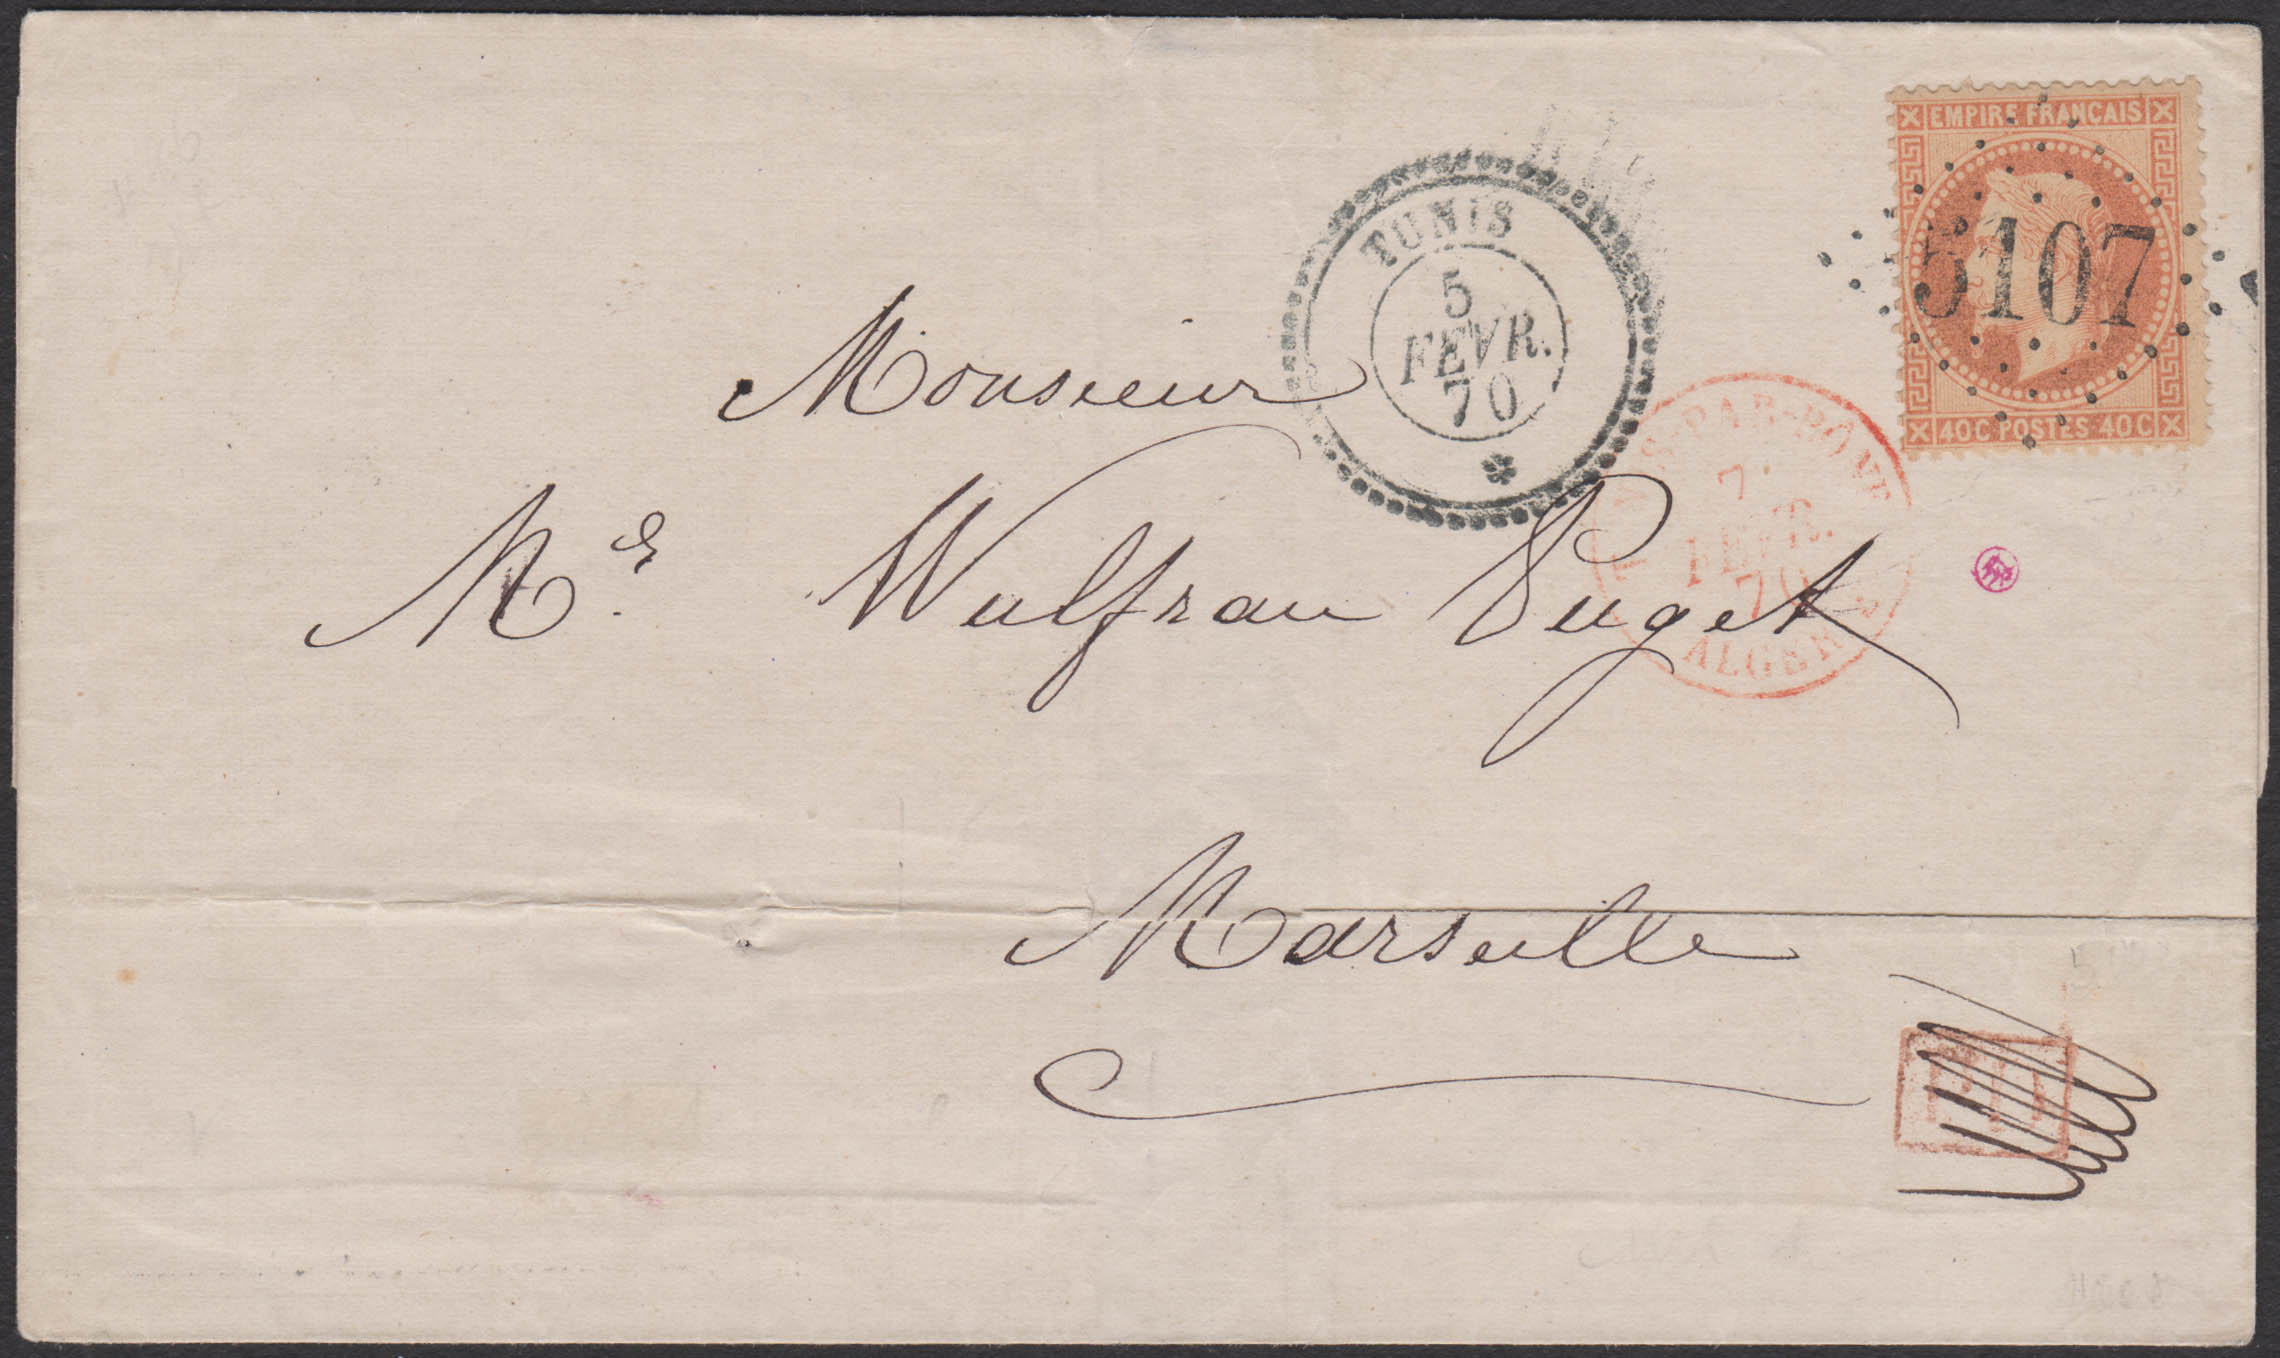 EMPIRE FRANCAIS
5107
40C POSTES 40C
TUNIS
5
FEVR.
70
TUNIS-PAR-BÔNE
7
FEVR.
70
ALGERIE
Monsieur
Mr. Wulfran Puget
Marseille